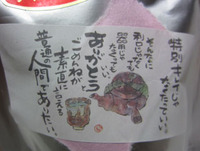 特別キレイじゃ
なくたっていい。
そんなに
利口じゃなく
器用じゃ
なくたって
いい。
ありがとう
ごめんねが
素直に言える
普通の
人間でありたい。